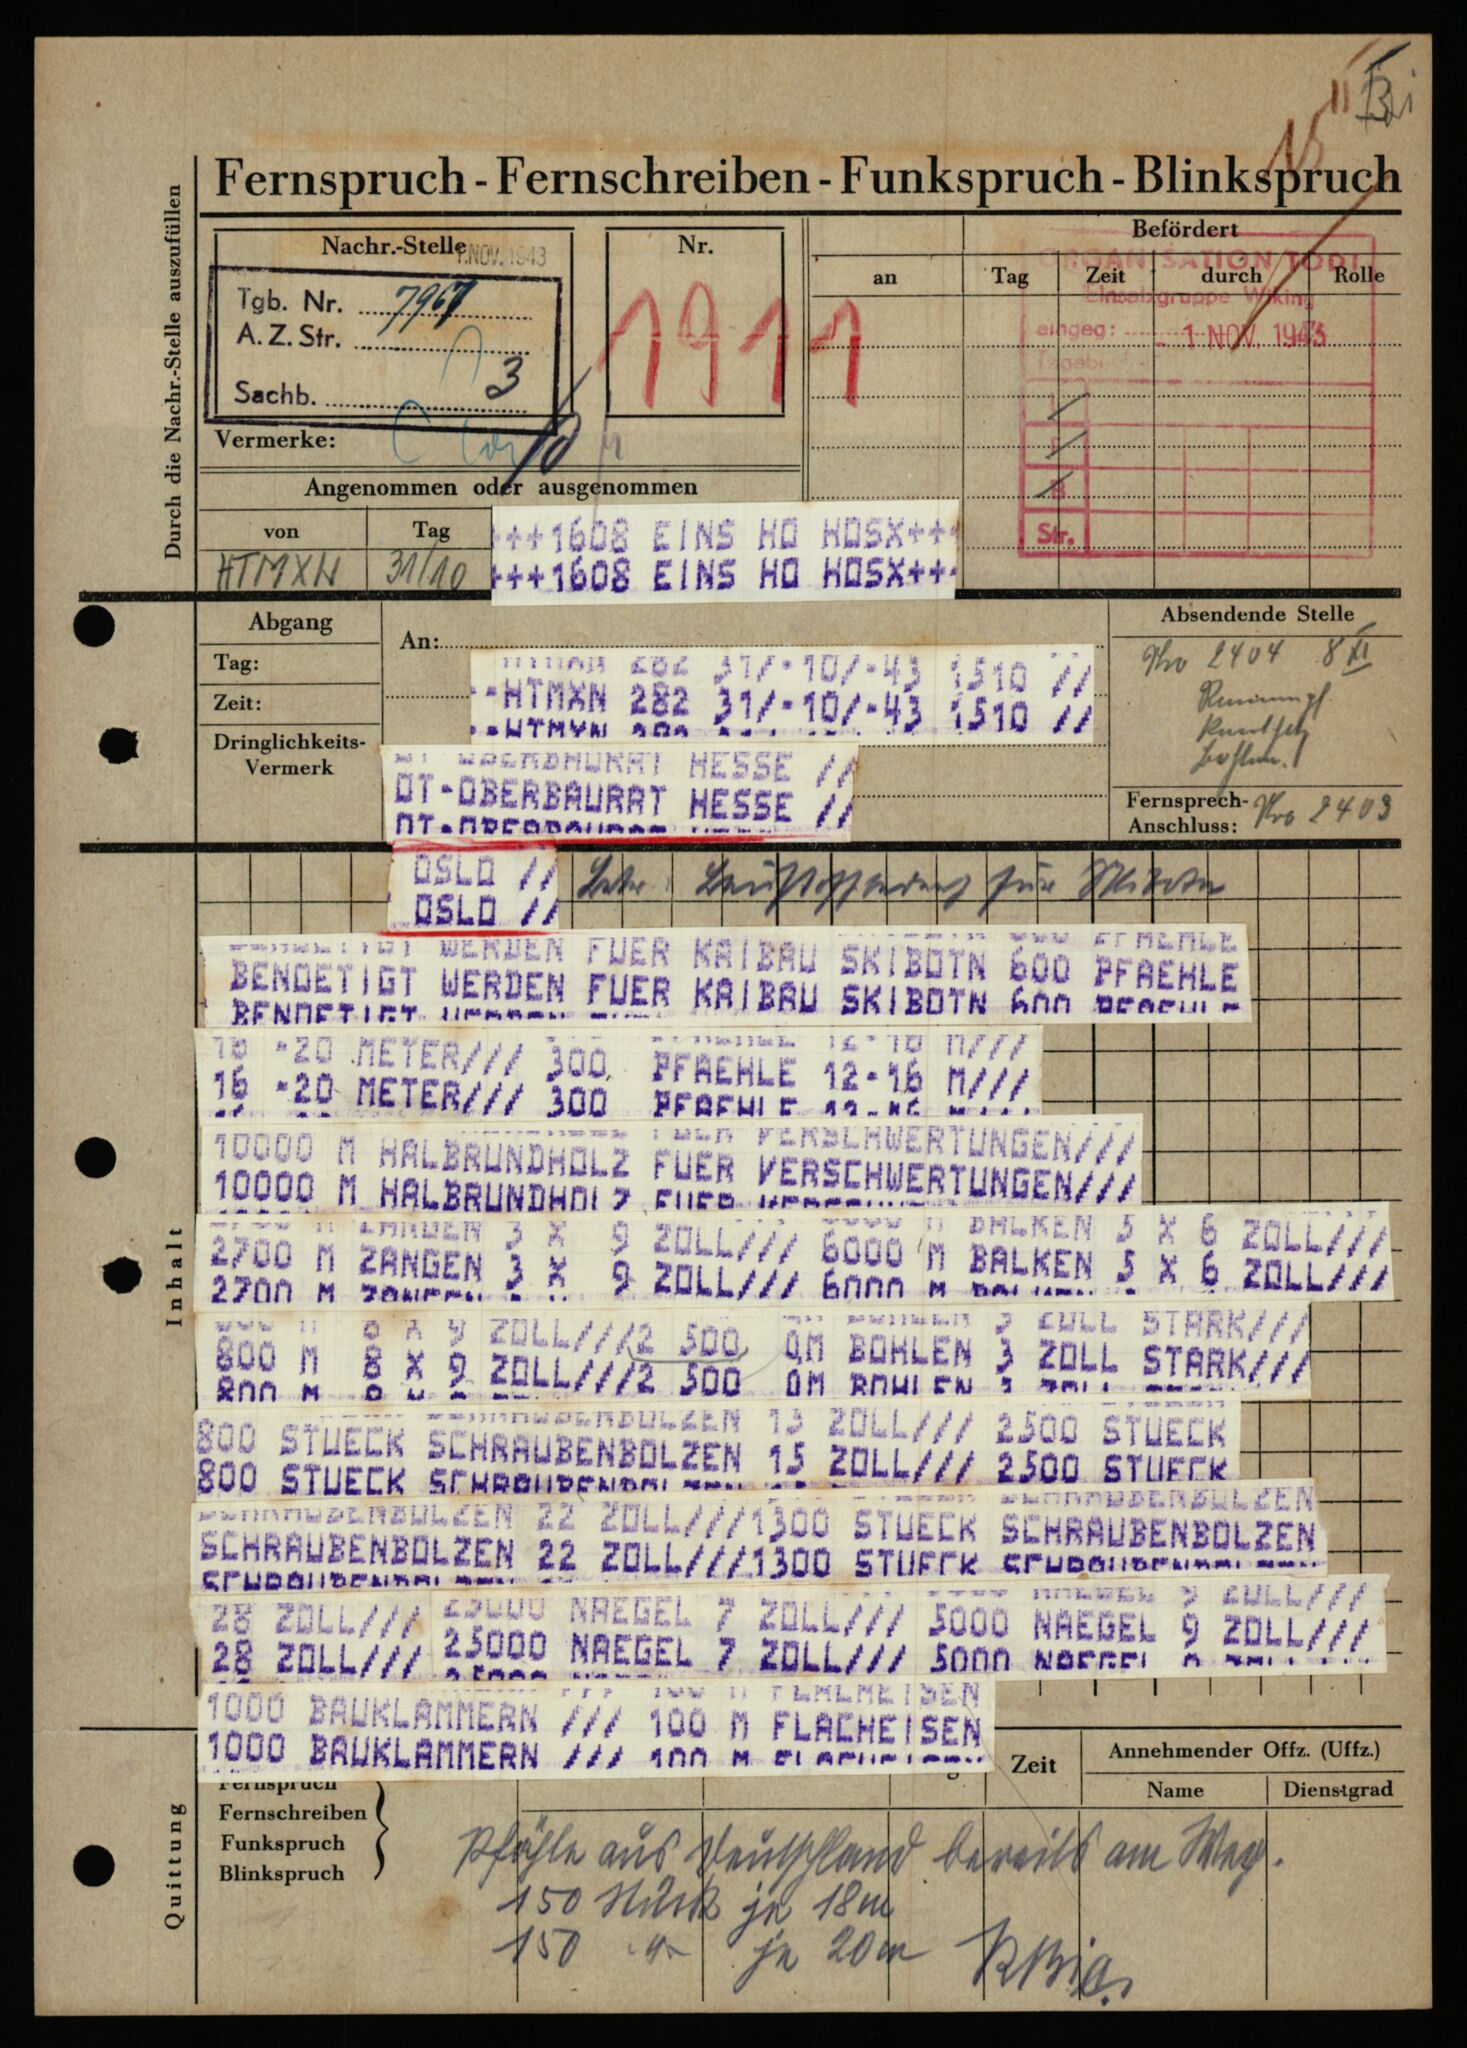 Fernspruch - Fernschreiben - Funkspruch - Blinkspruch
Durch die Nachr.-Stelle auszufüllen
Nachr.-Stelle
1. NOV. 1943
Tgb. Nr. 7967
A. Z. Str.
Sachb. 3
Nr.
1911
Vermerke:
Befördert
an Tag Zeit durch Rolle
ORGANISATION TODT
Einsatzgruppe Wiking
eingeg: - 1 NOV. 1943
Str.
Angenommen oder ausgenommen
von Tag
HTMXN 31/10
+++1608 EINS HO HOSX+++
+++1608 EINS HO HOSX+++
Abgang
Tag:
Zeit:
Dringlichkeits-
Vermerk
An:
Absendende Stelle
2404 8
Fernsprech-
Anschluss: 2403
--HTMXN 282 31/-10/-43 1510 //
OT-OBERBAURAT HESSE //
OSLO //
OSLO //
Inhalt
BENOETIGT WERDEN FUER KAIBAU SKIBOTN 600 PFAEHLE
16 -20 METER/// 300 PFAEHLE 12-16 M///
10000 M HALBRUNDHOLZ FUER VERSCHWERTUNGEN///
2700 M ZANGEN 3 X 9 ZOLL/// 6000 M BALKEN 5 X 6 ZOLL///
800 M 8 X 9 ZOLL///2 500 QM BOHLEN 3 ZOLL STARK///
800 STUECK SCHRAUBENBOLZEN 15 ZOLL/// 2500 STUECK
SCHRAUBENBOLZEN 22 ZOLL///1300 STUECK SCHRAUBENBOLZEN
28 ZOLL/// 25000 NAEGEL 7 ZOLL/// 5000 NAEGEL 9 ZOLL///
1000 BAUKLAMMERN /// 100 M FLACHEISEN
Quittung
Fernspruch
Fernschreiben
Funkspruch
Blinkspruch
Zeit
Annehmender Offz. (Uffz.)
Name Dienstgrad
Pfähle aus Deutschland bereits am Weg.
150 Stück je 18 m
150 -"- je 20 m